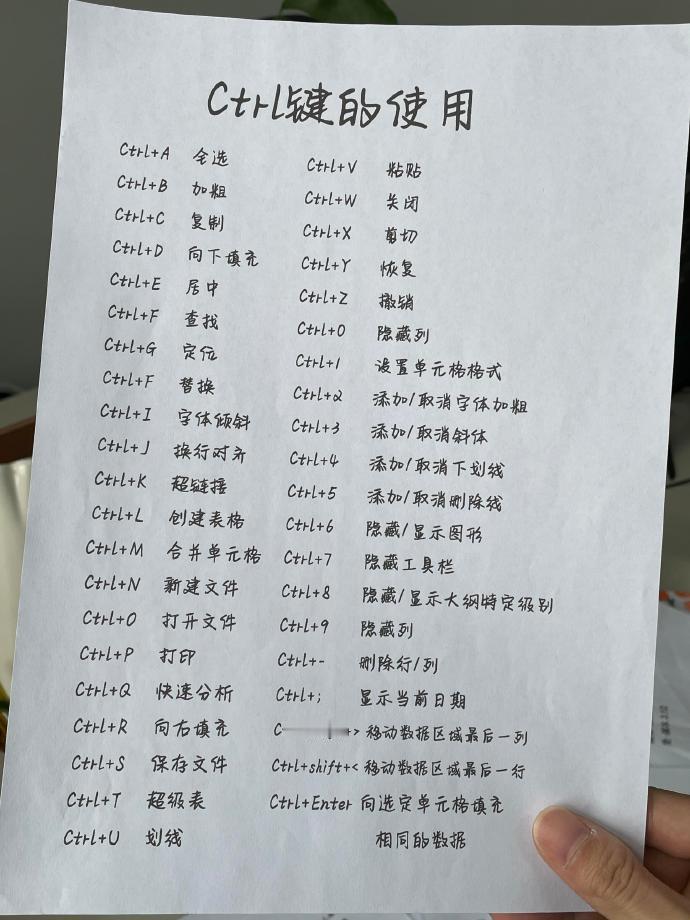 Ctrl键的使用
Ctrl+A 全选
Ctrl+B 加粗
Ctrl+C 复制
Ctrl+D 向下填充
Ctrl+E 居中
Ctrl+F 查找
Ctrl+G 定位
Ctrl+F 替换
Ctrl+I 字体倾斜
Ctrl+J 换行对齐
Ctrl+K 超链接
Ctrl+L 创建表格
Ctrl+M 合并单元格
Ctrl+N 新建文件
Ctrl+O 打开文件
Ctrl+P 打印
Ctrl+Q 快速分析
Ctrl+R 向右填充
Ctrl+S 保存文件
Ctrl+T 超级表
Ctrl+U 划线
Ctrl+V 粘贴
Ctrl+W 关闭
Ctrl+X 剪切
Ctrl+Y 恢复
Ctrl+Z 撤销
Ctrl+0 隐藏列
Ctrl+1 设置单元格格式
Ctrl+2 添加/取消字体加粗
Ctrl+3 添加/取消斜体
Ctrl+4 添加/取消下划线
Ctrl+5 添加/取消删除线
Ctrl+6 隐藏/显示图形
Ctrl+7 隐藏工具栏
Ctrl+8 隐藏/显示大纲特定级别
Ctrl+9 隐藏列
Ctrl+- 删除行/列
Ctrl+; 显示当前日期
C +> 移动数据区域最后一列
Ctrl+shift+< 移动数据区域最后一行
Ctrl+Enter 向选定单元格填充
相同的数据